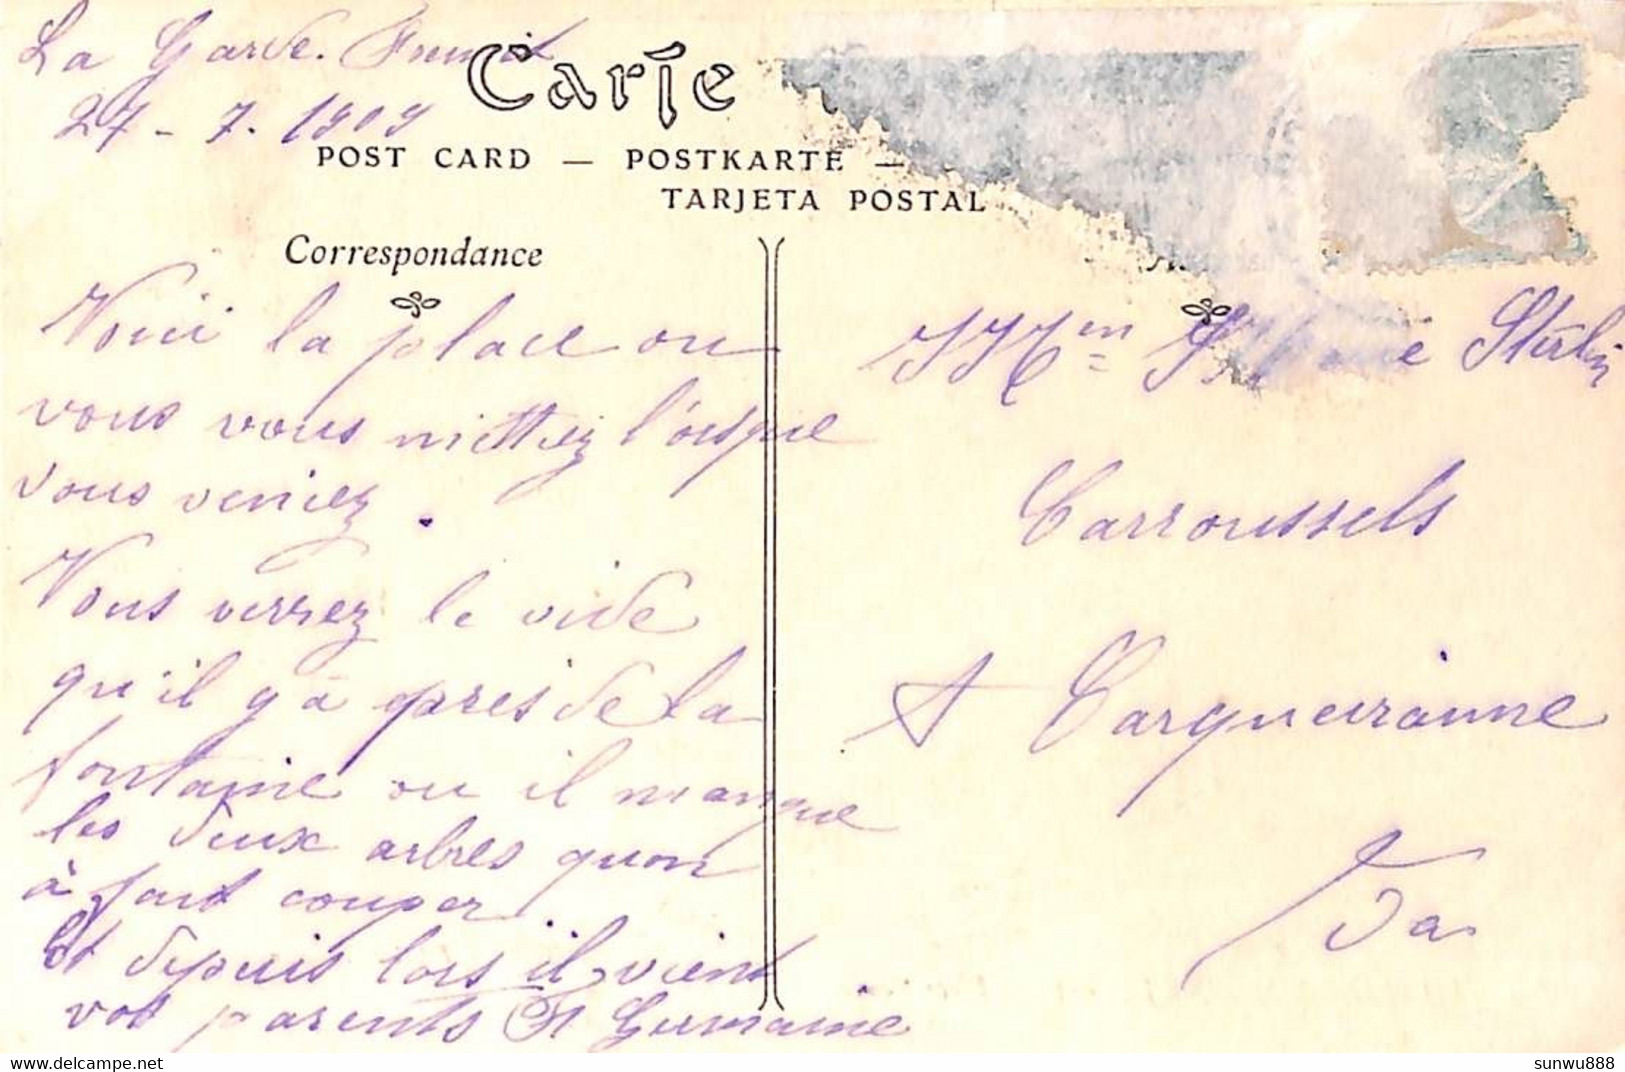 La Garde. Freinet
27 - 7. 1909
Carte
POST CARD — POSTKARTE —
TARJETA POSTAL
Correspondance
Voici la place ou
vous vous mettiez l'orsque
vous veniez.
Vous verrez le vide
qu'il y à apres de la
fontaine ou il manque
les deux arbres quon
à fait couper.
Et depuis lors il vient
vos parents St Germaine
Carroussels
A Carqueiranne
Var
sunwu888